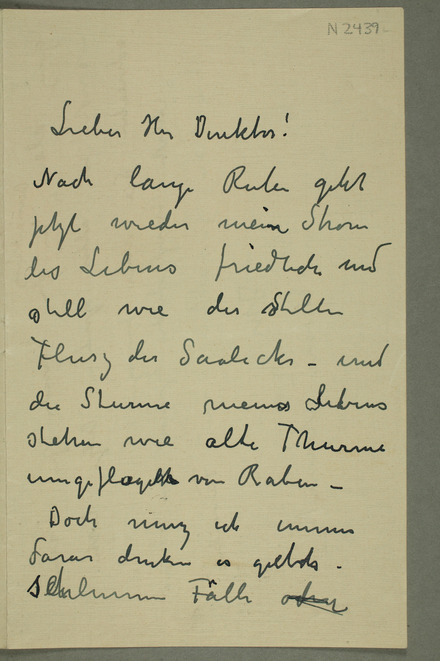 N 2439
Lieber Herr Direktor!
Nach lange Ruhen geht
jetzt wieder mein Strom
des Lebens friedlich und
still wie der stille
Flusz der Saaleck - und
die Sturme meines Lebens
stehen wie alte Thurme
umgeflogelt von Raben -
Doch musz ich immer
daran denken es giebt
schlimme Fälle